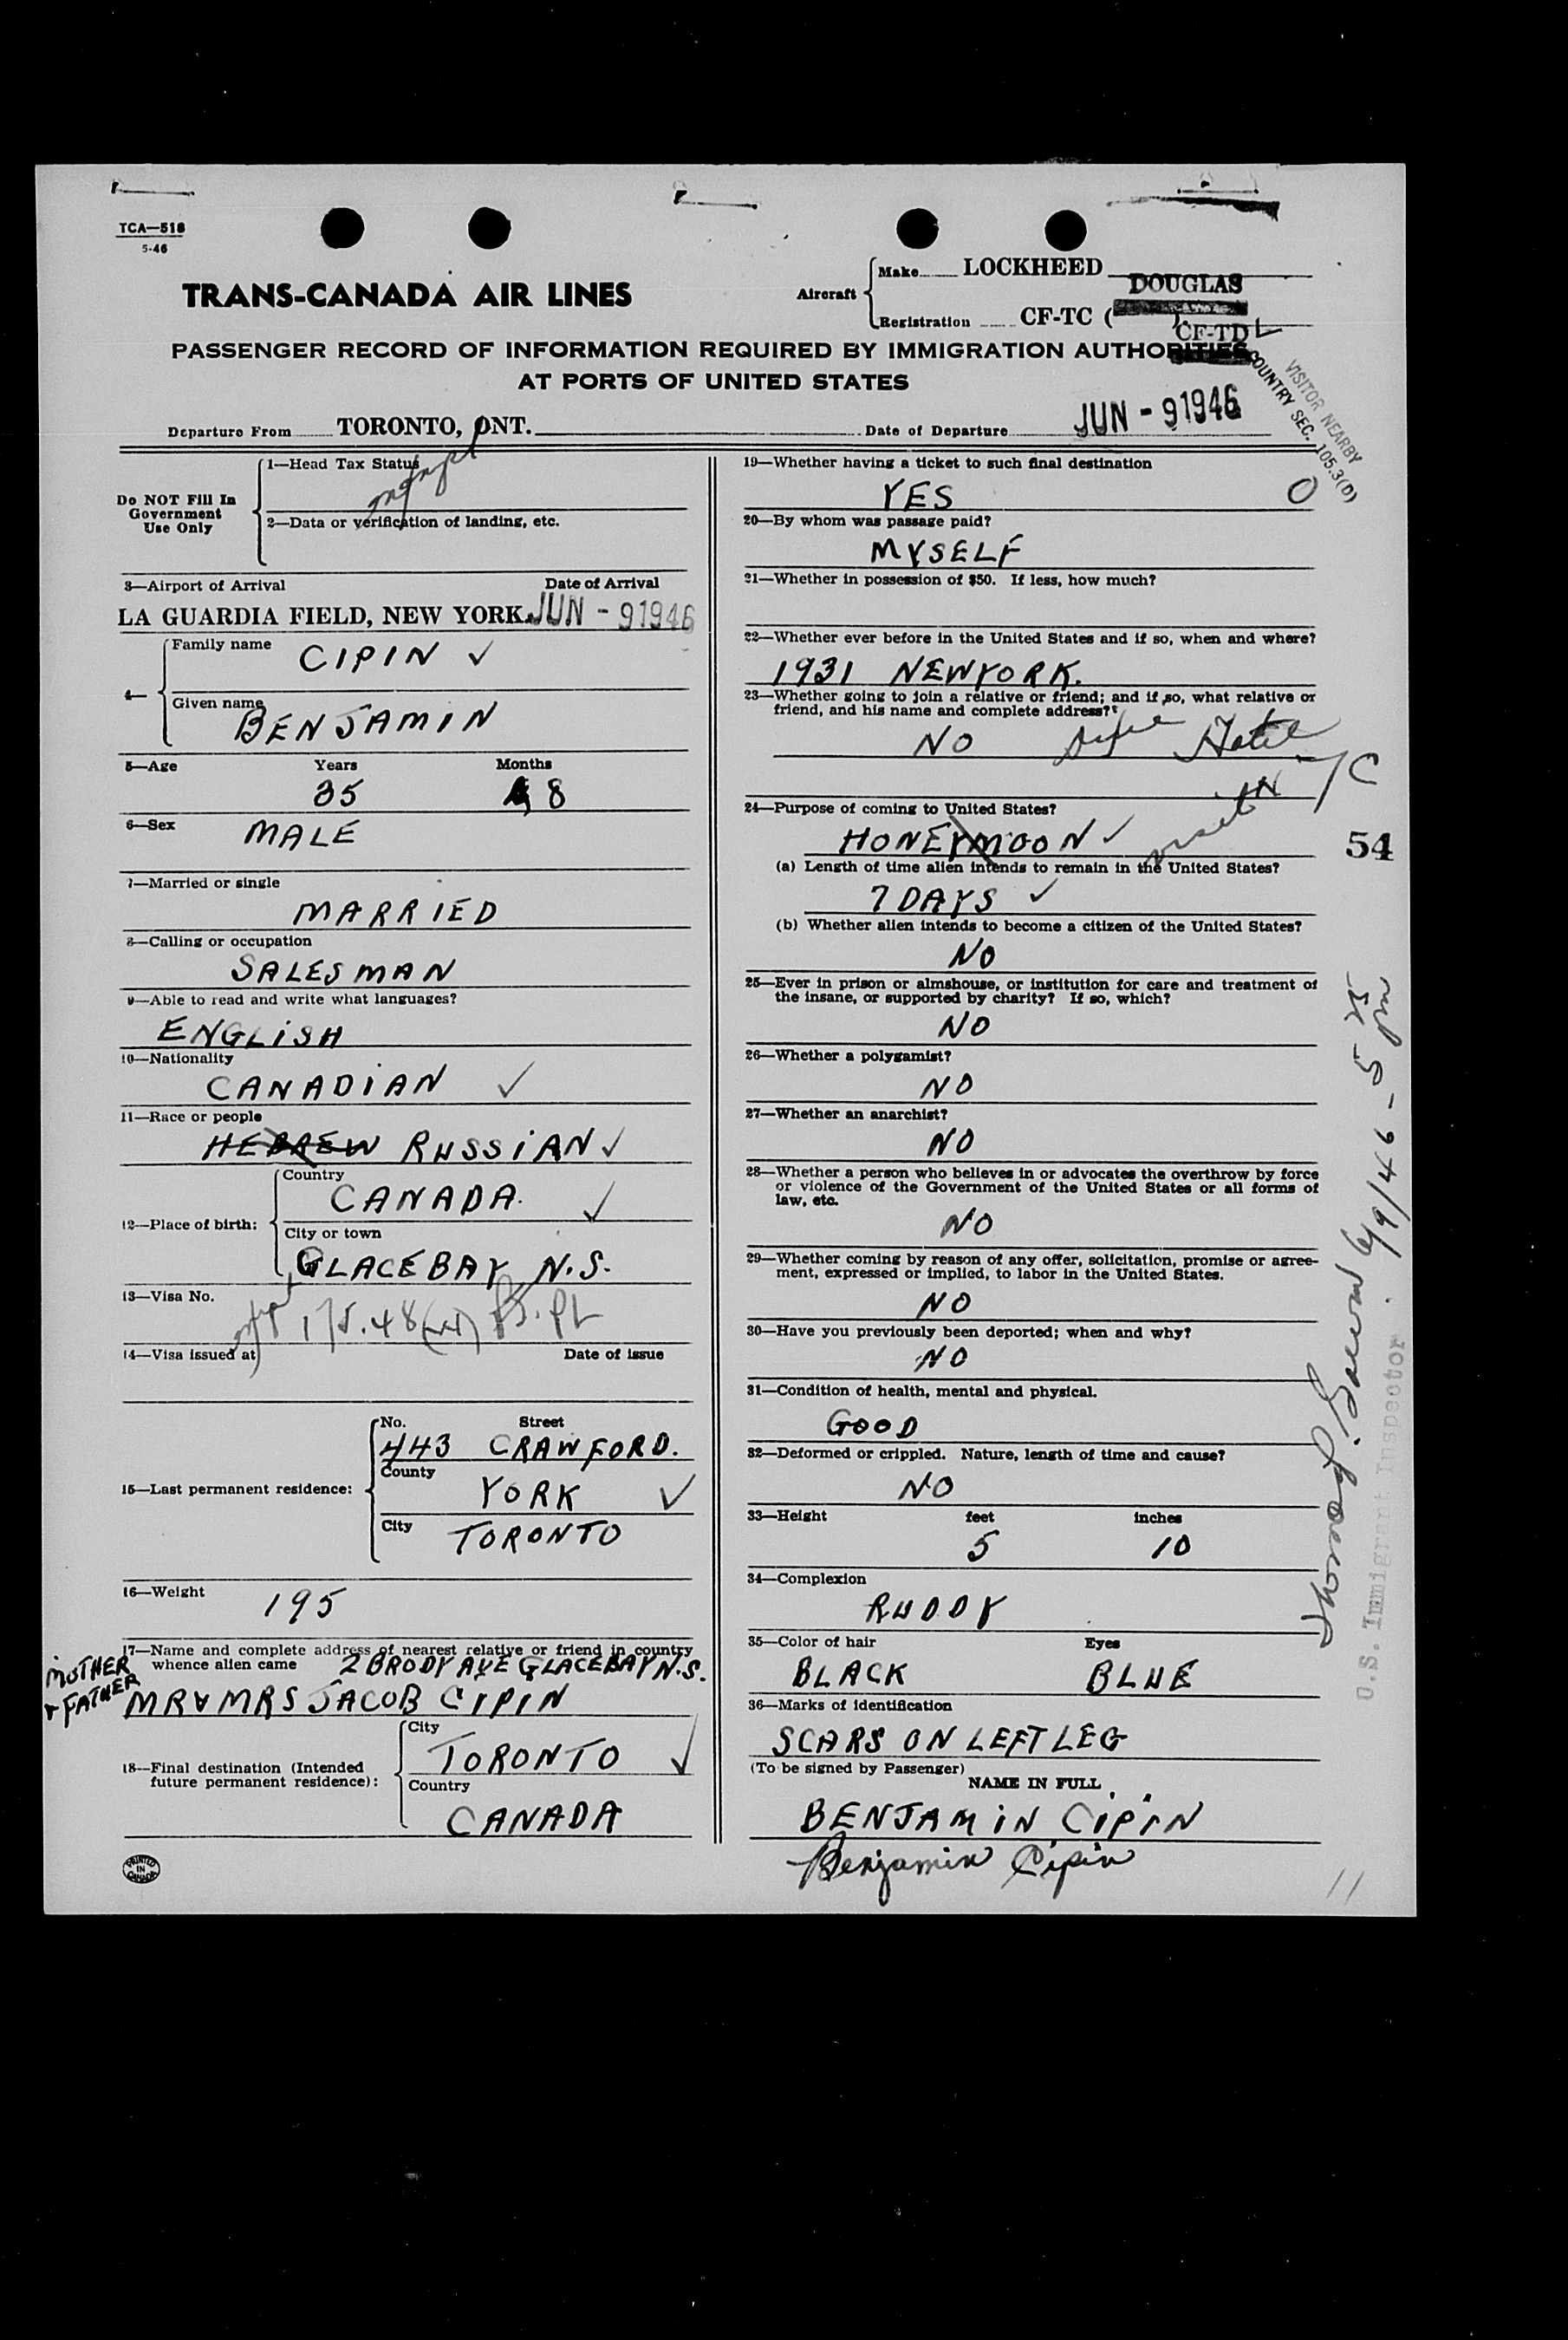 TCA—518
5-46
TRANS-CANADA AIR LINES
Aircraft
Make LOCKHEED
DOUGLAS
Registration CF-TC ( )
CF-TD L
PASSENGER RECORD OF INFORMATION REQUIRED BY IMMIGRATION AUTHORITIES
AT PORTS OF UNITED STATES
VISITOR NEARBY
COUNTRY SEC. 105.3(D)
Departure From TORONTO, ONT. Date of Departure JUN - 9 1946
Do NOT Fill In
Government
Use Only
1—Head Tax Status
2—Data or verification of landing, etc.
3—Airport of Arrival Date of Arrival
LA GUARDIA FIELD, NEW YORK. JUN - 9 1946
4—
Family name CIPIN ✓
Given name BENJAMIN
5—Age Years Months
35 8
6—Sex MALE
7—Married or single
MARRIED
8—Calling or occupation
SALESMAN
9—Able to read and write what languages?
ENGLISH
10—Nationality
CANADIAN ✓
11—Race or people
HEBREW RUSSIAN ✓
12—Place of birth:
Country
CANADA. ✓
City or town
GLACE BAY N.S.
13—Visa No.
175.48
14—Visa issued at Date of issue
15—Last permanent residence:
No. Street
443 CRAWFORD.
County
YORK ✓
City TORONTO
16—Weight 195
17—Name and complete address of nearest relative or friend in country
whence alien came 2 BRODY AVE GLACE BAY N.S.
MOTHER
& FATHER
MR & MRS JACOB CIPIN
18—Final destination (Intended
future permanent residence):
City
TORONTO ✓
Country
CANADA
PRINTED
IN
CANADA
19—Whether having a ticket to such final destination
YES O
20—By whom was passage paid?
MYSELF
21—Whether in possession of $50. If less, how much?
22—Whether ever before in the United States and if so, when and where?
1931 NEWYORK.
23—Whether going to join a relative or friend; and if so, what relative or
friend, and his name and complete address?
NO Hotel
24—Purpose of coming to United States?
HONEYMOON ✓ visit
54
(a) Length of time alien intends to remain in the United States?
7 DAYS ✓
(b) Whether alien intends to become a citizen of the United States?
NO
25—Ever in prison or almshouse, or institution for care and treatment of
the insane, or supported by charity? If so, which?
NO
26—Whether a polygamist?
NO
27—Whether an anarchist?
NO
28—Whether a person who believes in or advocates the overthrow by force
or violence of the Government of the United States or all forms of
law, etc.
NO
29—Whether coming by reason of any offer, solicitation, promise or agree-
ment, expressed or implied, to labor in the United States.
NO
30—Have you previously been deported; when and why?
NO
31—Condition of health, mental and physical.
GOOD
32—Deformed or crippled. Nature, length of time and cause?
NO
33—Height feet inches
5 10
34—Complexion
RUDDY
35—Color of hair Eyes
BLACK BLUE
36—Marks of identification
SCARS ON LEFT LEG
(To be signed by Passenger)
NAME IN FULL
BENJAMIN CIPIN
Benjamin Cipin
6/9/46 - 5 25 pm
U.S. Immigrant Inspector
11